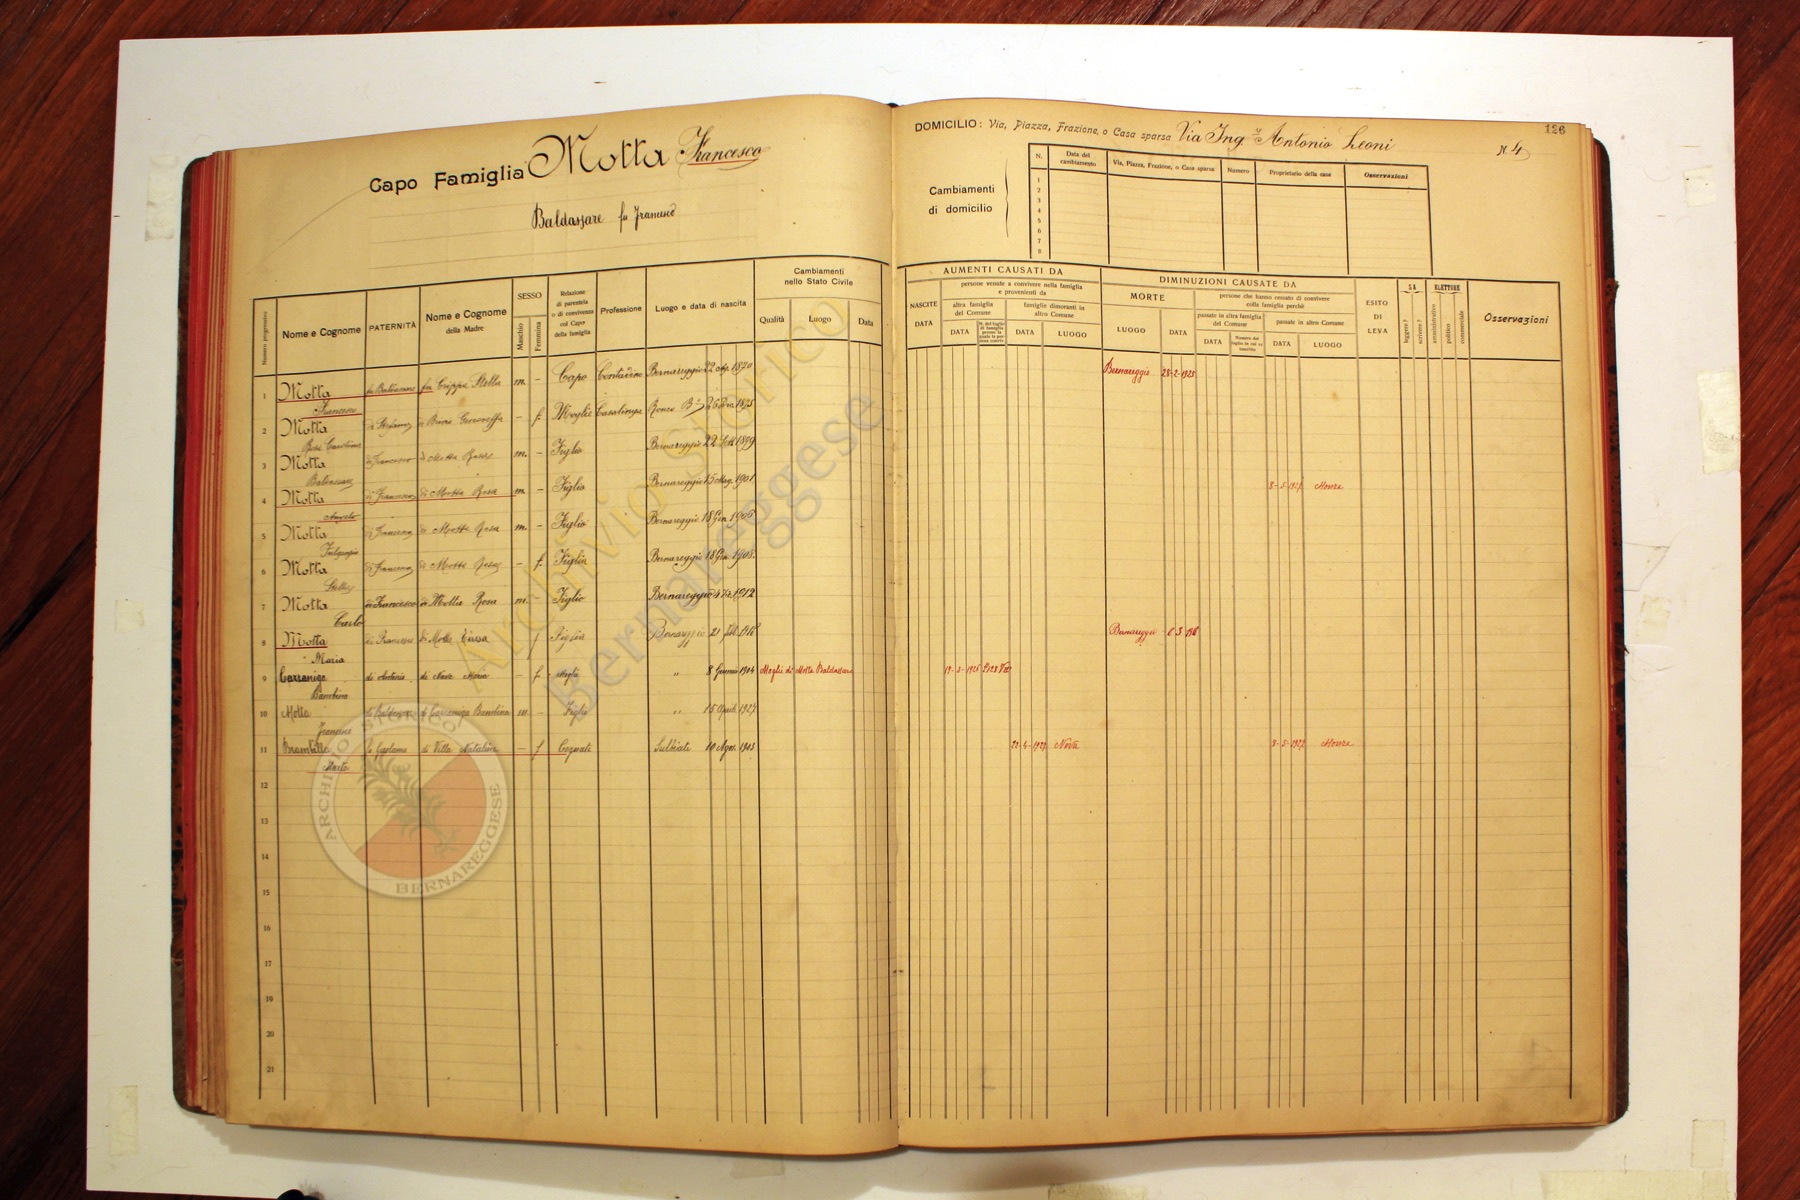 Capo Famiglia Motta Francesco
Baldassare fu Francesco
126
DOMICILIO: Via, Piazza, Frazione, o Casa sparsa Via Ing. Antonio Leoni N. 4
Cambiamenti di domicilio
N. Data del cambiamento Via, Piazza, Frazione, o Casa sparsa Numero Proprietario della casa Osservazioni
1
2
3
4
5
6
7
8
Numero progressivo
Nome e Cognome
PATERNITÀ
Nome e Cognome della Madre
SESSO
Maschio
Femmina
Relazione di parentela o di convivenza col Capo della famiglia
Professione
Luogo e data di nascita
Cambiamenti nello Stato Civile
Qualità Luogo Data
NASCITE DATA
AUMENTI CAUSATI DA
persone venute a convivere nella famiglia e provenienti da
altra famiglia del Comune
famiglie dimoranti in altro Comune
DATA
DATA LUOGO
DIMINUZIONI CAUSATE DA
MORTE
LUOGO DATA
persone che hanno cessato di convivere colla famiglia perchè
passate in altra famiglia del Comune
passate in altro Comune
DATA
DATA LUOGO
ESITO DI LEVA
SA
leggere?
scrivere?
ELETTORE
amministrativo
politico
commerciale
Osservazioni
1 Motta Francesco fu Baldassare fu Crippa Stella m. - Capo Contadino Bernareggio 22 1870 Bernareggio 28-2-1925
2 Motta Rosa Carolina di Stefano - f. Moglie Casalinga Ronco 26 Dic. 1875
3 Motta Baldassare di Francesco di Motta Rosa m. - Figlio Bernareggio 22 Sett 1899
4 Motta Angelo di Francesco di Motta Rosa m. - Figlio Bernareggio 15 Mag. 1901 8-5-1927 Monza
5 Motta Fulgenzio di Francesco di Motta Rosa m. - Figlio Bernareggio 18 Gen. 1906
6 Motta Stella di Francesco di Motta Rosa - f. Figlia Bernareggio 18 Gen. 1908.
7 Motta Carlo di Francesco di Motta Rosa m. Figlio Bernareggio 1912
8 Motta Maria di Francesco di Motta f Figlia Bernareggio 21 1916 Bernareggio 6-3-1916
9 Carzaniga Bambina di Antonio di Nava Maria - f. Moglie " 8 Gennaio 1904 Moglie di Motta Baldassare
10 Motta Francesco di Baldassare di Carzaniga Bambina m - Figlio " 15 April. 1927
11 Brambilla di Gaetano di Villa Natalina - f Cognata Sulbiate 10 Ago. 1903 22-4-1927 8-5-1927 Monza
12
13
14
15
16
17
18
19
20
21
Archivio Storico
Bernareggese
ARCHIVIO STORICO
BERNAREGGESE